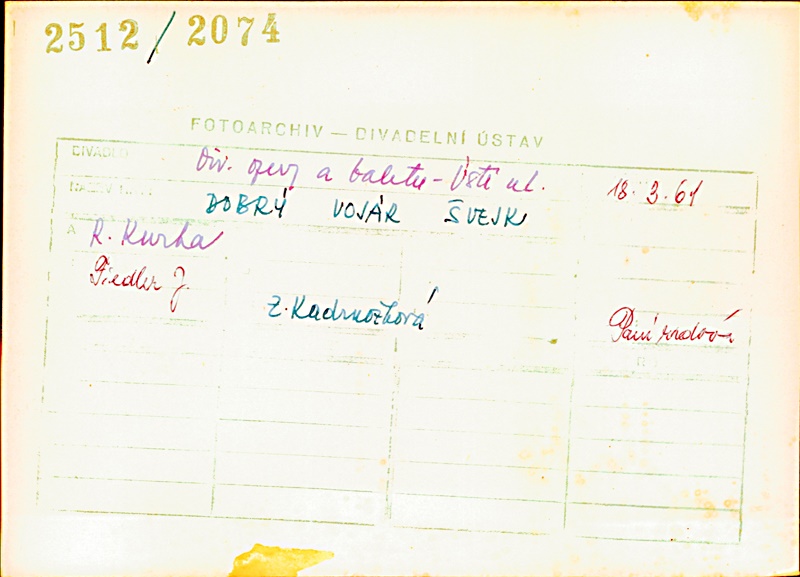 2512/2074
FOTOARCHIV — DIVADELNÍ ÚSTAV
DIVADLO Div. opery a baletu - Ústí n.L. 18. 3. 61
DOBRÝ VOJÁK ŠVEJK
A R. Kurka
Fiedler J.
Z. Kadrnožková Paní radová